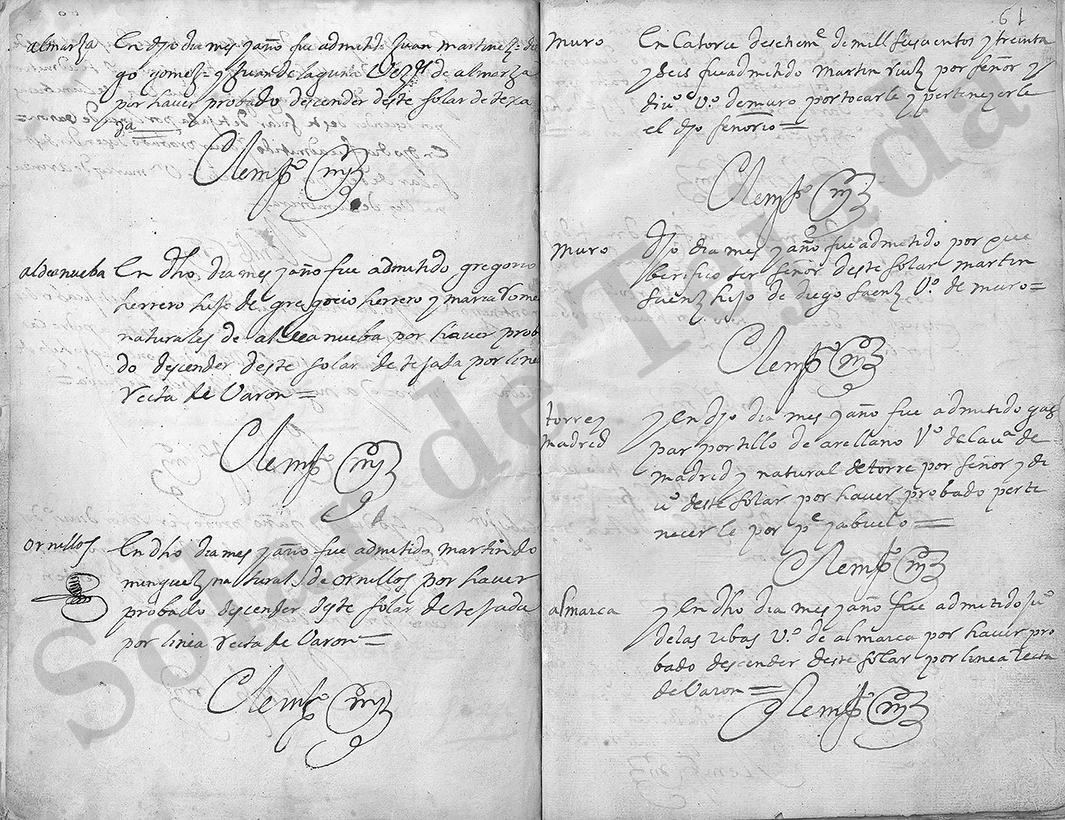 almarza
En djo dia mes y año fue admitido Juan martinez= die
go gomez= y Juan de laguna Vezos de almarza
por haver probado descender deste solar de texa
da
Clemte mrz
aldeanueba
En dho, dia mes y año fue admitido gregorio
herrero hijo de gregorio herrero y maria gome
naturales de aldeanueba por haver proba
do descender deste solar de tejada por linea
recta de Varon=
Clemte mrz
ornillos
En dho dia mes y año fue admitido martin do
minguez natural de ornillos por haver
probado descender deste solar de tejada
por linea recta de Varon=
Clemte mrz
61
muro
En Catorce de de mill seiscientos y treinta
y seis fue admitido martin Ruiz por señor y
divo. vo. de muro por tocarle y pertenezerle
el djo señorio=
Clemte mrz
muro
Djo dia mes y año fue admitido por que
berifico ser señor deste solar martin
saenz hijo de diego saenz Vo. de muro=
Clemte mrz
torre y
madrid
y En djo dia mes y año fue admitido gas
par portillo de arellano Vo. de la va. de
madrid y natural de torre por señor y di
vo. deste solar por haver probado perte
necerle por pe. y abuelo=
Clemte mrz
almarca
y En dho dia mes y año fue admitido Juo.
de las ribas Vo. de almarca por haver pro
bado descender deste solar por linea recta
de Varon=
Clemte mrz
Solar de Tejada